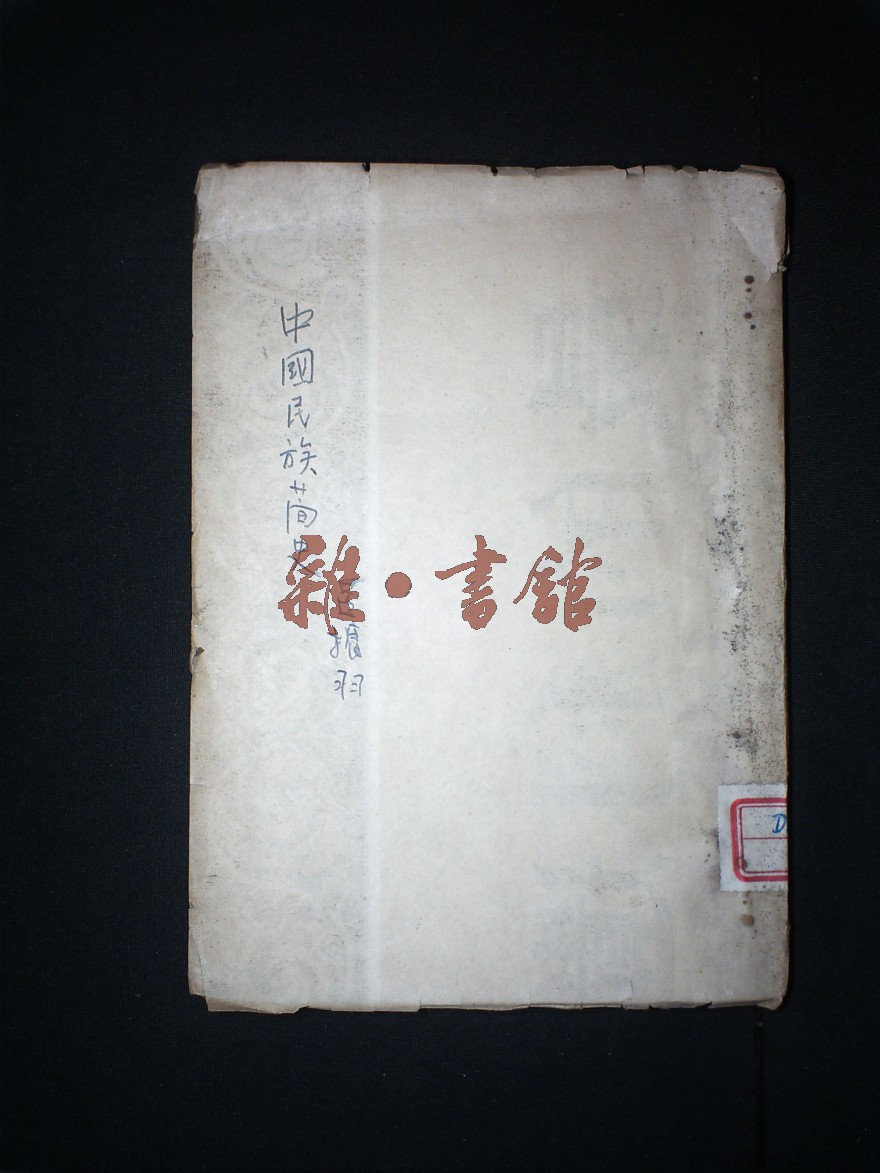 中國民族简史
振羽
雜·書館
D